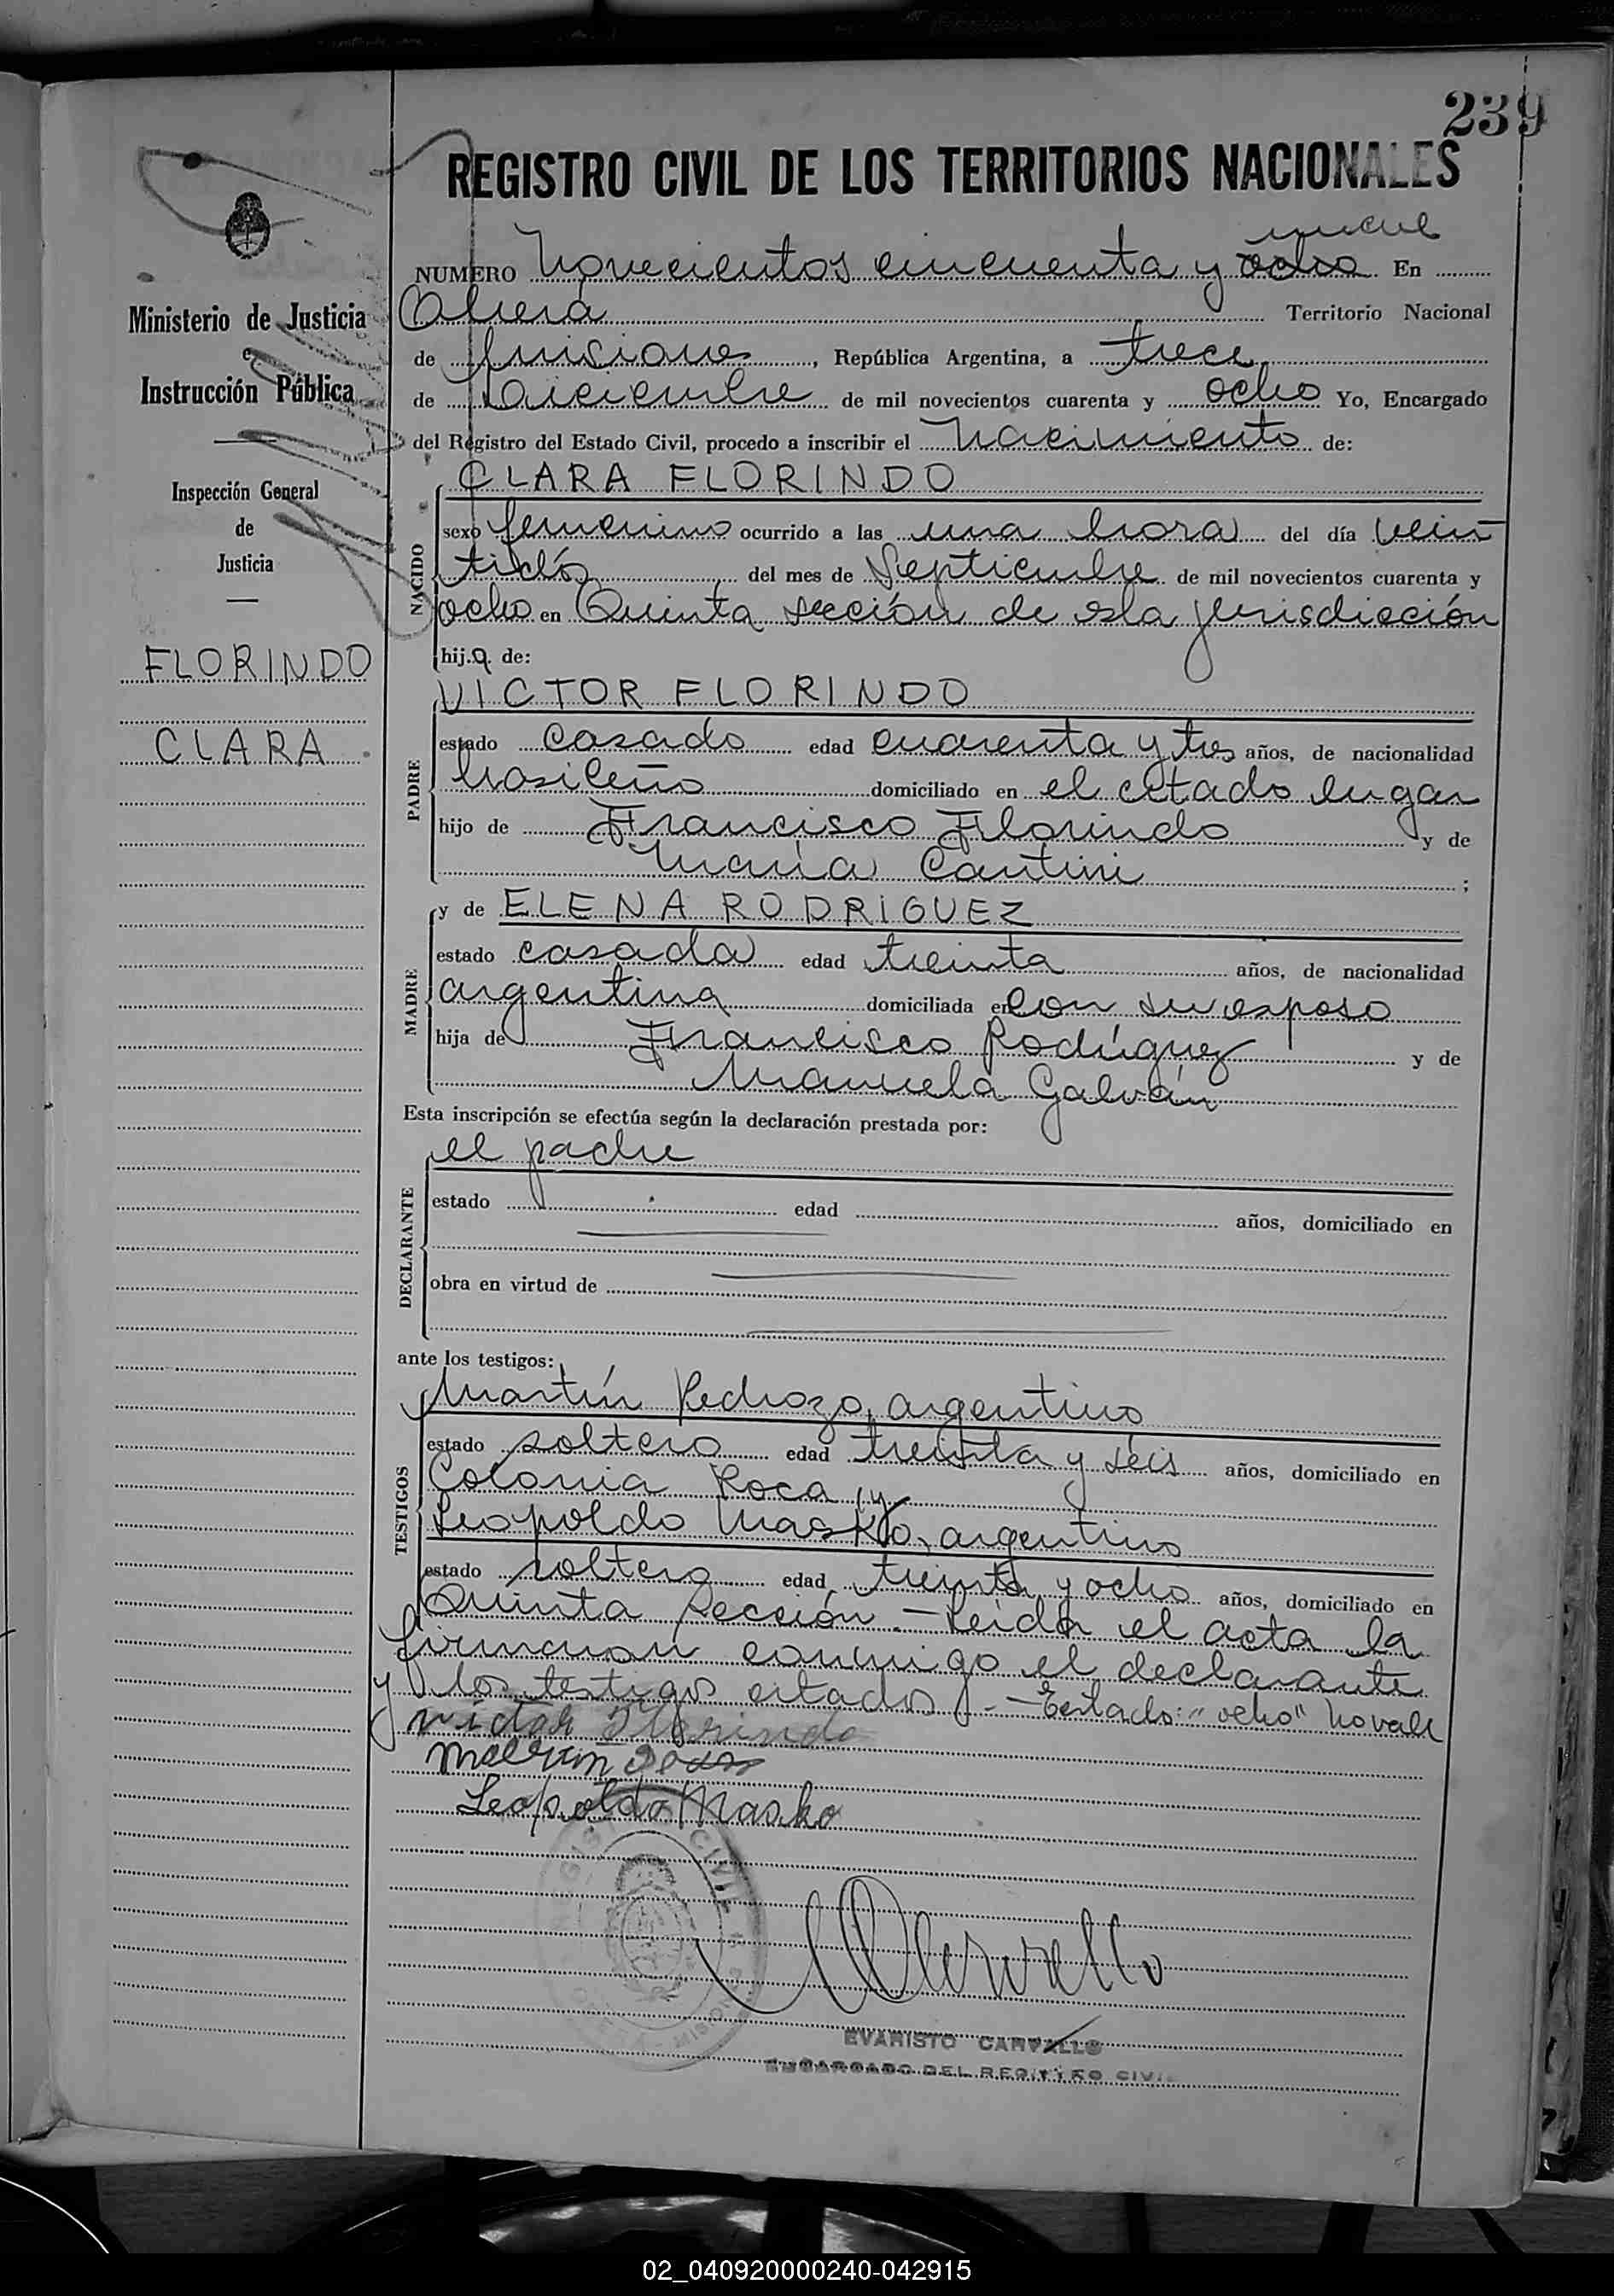 239
REGISTRO CIVIL DE LOS TERRITORIOS NACIONALES
nueve
NUMERO Novecientos cincuenta y ocho En
Oberá Territorio Nacional
de Misiones, República Argentina, a trece
de Diciembre de mil novecientos cuarenta y ocho Yo, Encargado
del Registro del Estado Civil, procedo a inscribir el Nacimiento de:
Ministerio de Justicia
e
Instrucción Pública
Inspección General
de
Justicia
FLORINDO
CLARA
NACIDO
CLARA FLORINDO
sexo femenino ocurrido a las una hora del día vein
tidós del mes de Septiembre de mil novecientos cuarenta y
ocho en Quinta sección de esta jurisdicción
hija de:
PADRE
VICTOR FLORINDO
estado casado edad cuarenta y tres años, de nacionalidad
brasileño domiciliado en el citado lugar
hijo de Francisco Florindo y de
María Cantini ;
MADRE
y de ELENA RODRIGUEZ
estado casada edad treinta años, de nacionalidad
argentina domiciliada en con su esposo
hija de Francisco Rodríguez y de
Manuela Galván
Esta inscripción se efectúa según la declaración prestada por:
DECLARANTE
el padre
estado edad años, domiciliado en
obra en virtud de
ante los testigos:
TESTIGOS
Martín Pedrozo, argentino
estado soltero edad treinta y séis años, domiciliado en
Colonia Roca y
Leopoldo Masko, argentino
estado soltero edad treinta y ocho años, domiciliado en
Quinta Sección.- Leída el acta la
firmaron conmigo el declarante
y los testigos citados.- Testado: "ocho" no vale
victor Florindo
Leopoldo Masko
REGISTRO CIVIL
OBERA MISIONES
EVARISTO CARVALLO
ENCARGADO DEL REGISTRO CIVIL
02_040920000240-042915